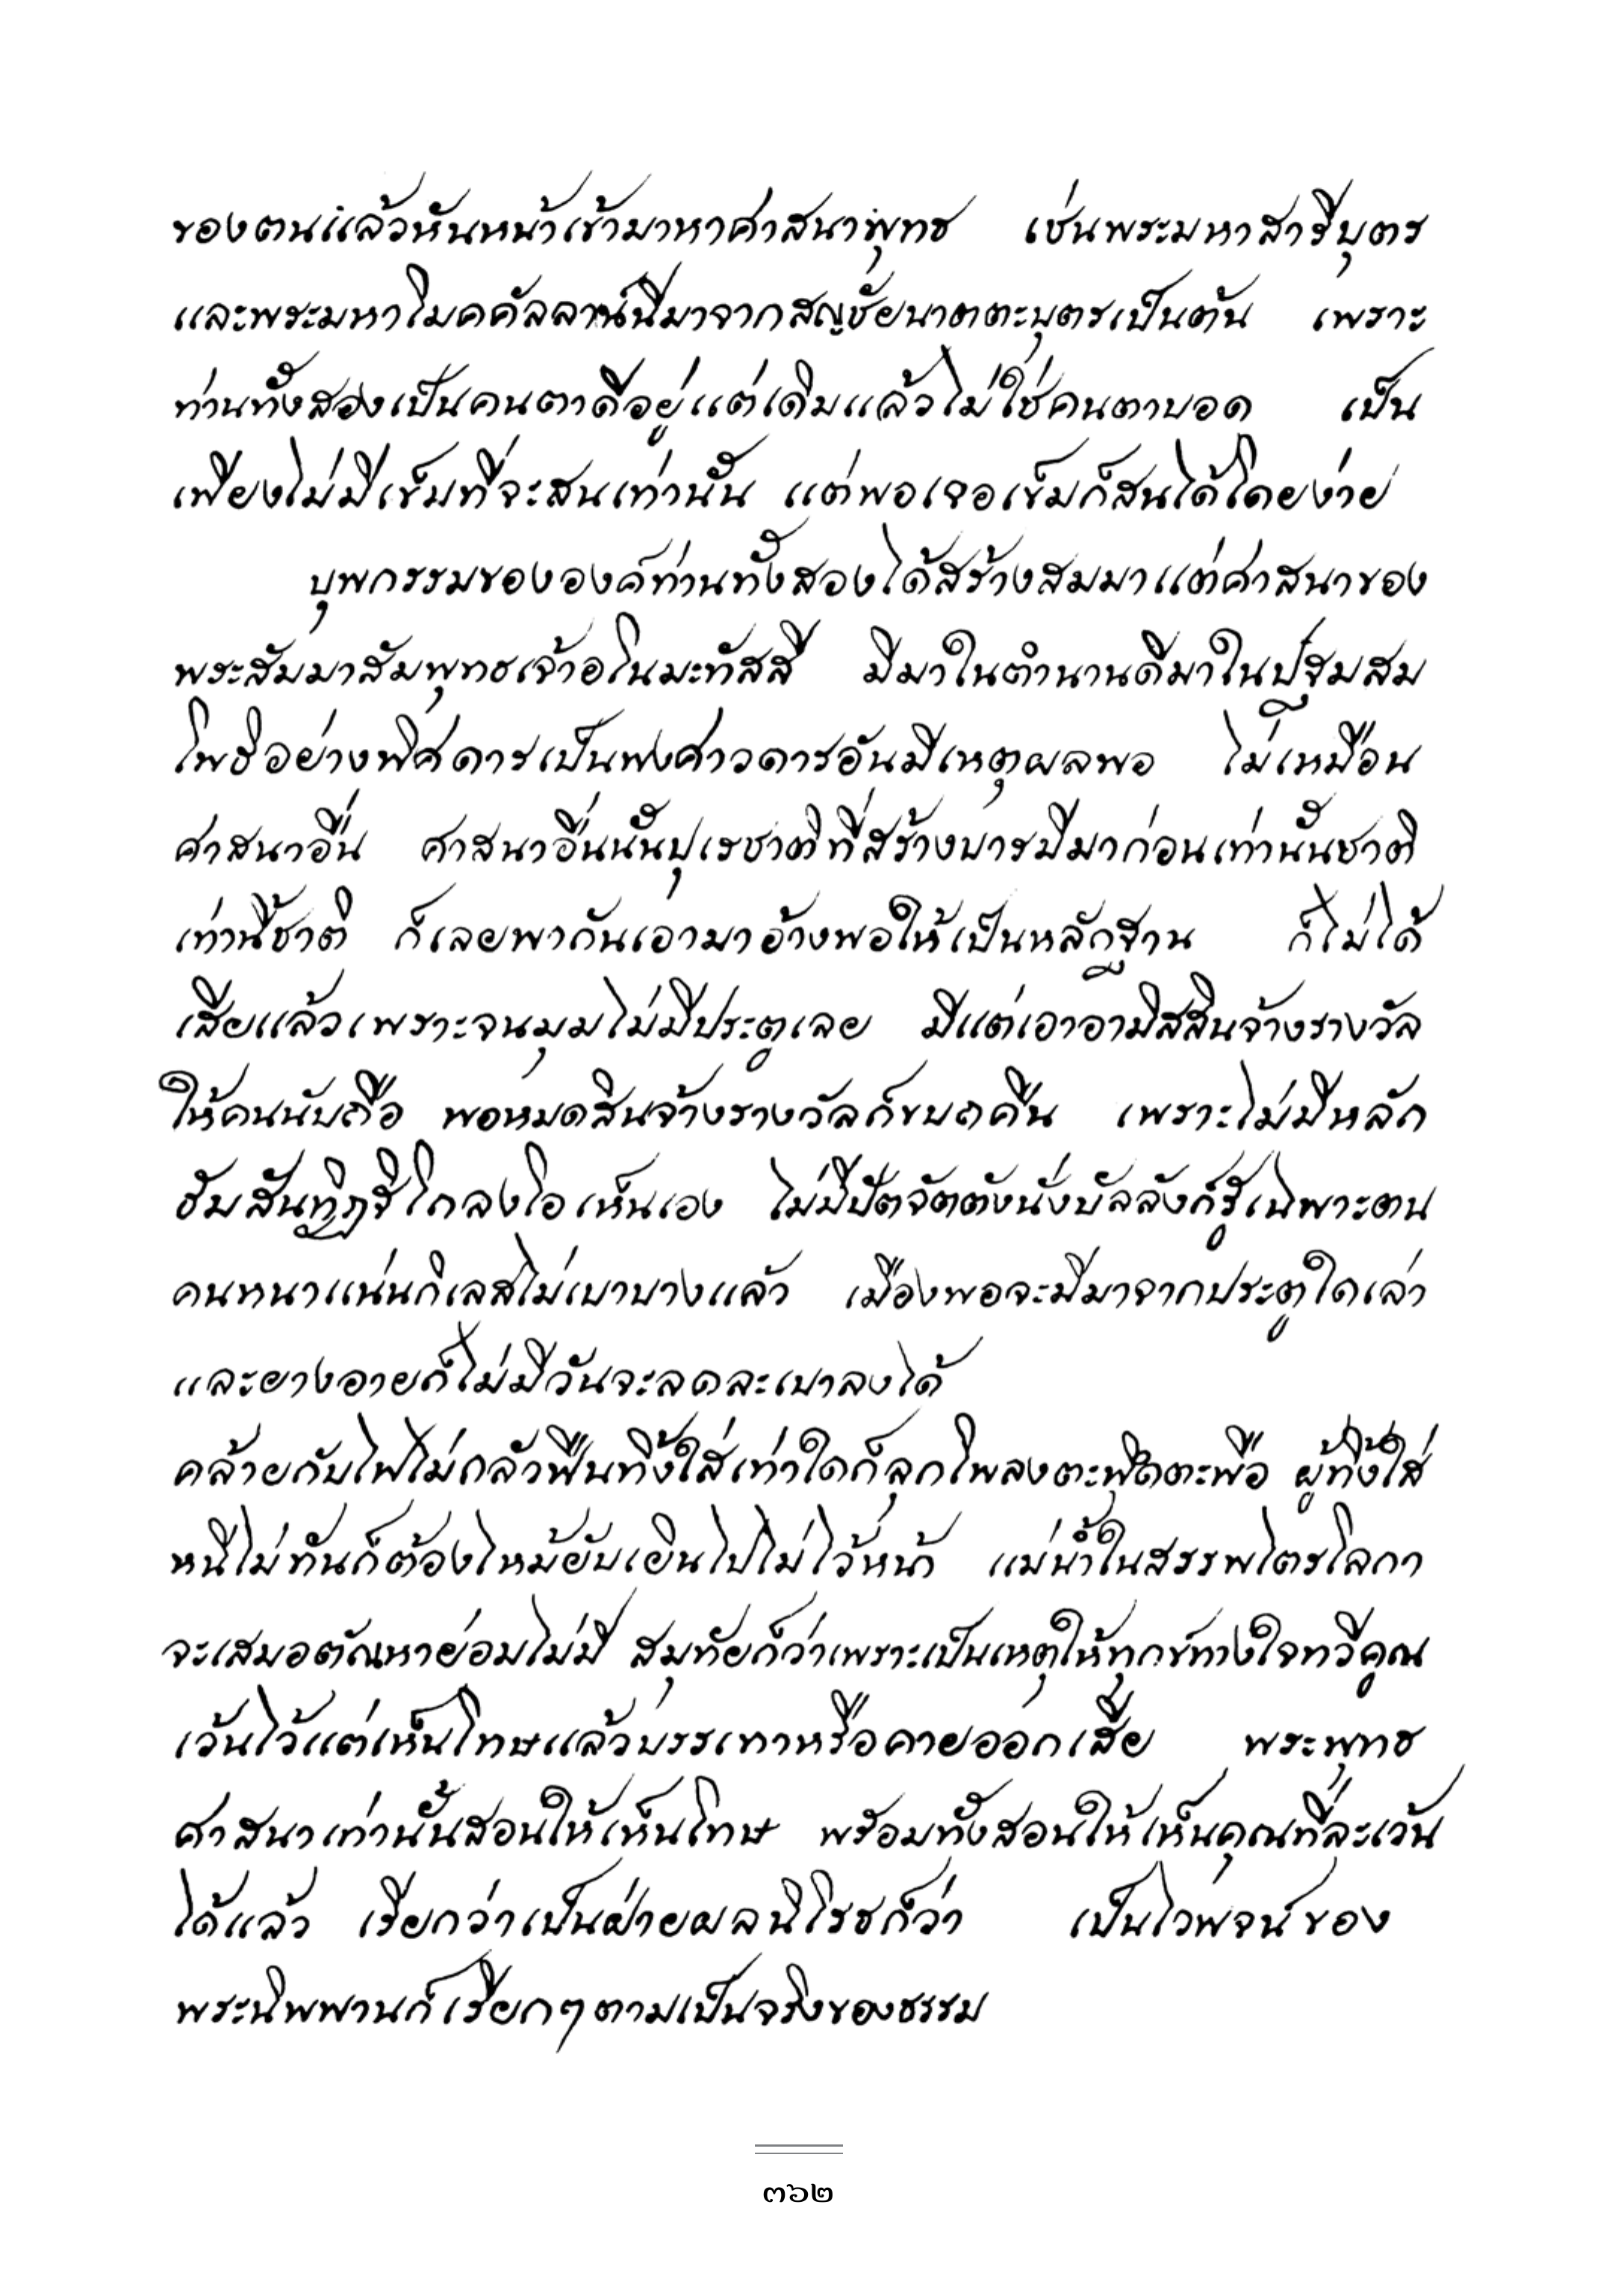 ของตนแล้วหันหน้าเข้ามาหาศาสนาพุทธ เช่นพระมหาสารีบุตร
และพระมหาโมคคัลลาน์นี่มาจากสญชัยนาตตะบุตรเป็นต้น เพราะ
ท่านทั้งสองเป็นคนตาดีอยู่แต่เดิมแล้วไม่ใช่คนตาบอด เป็น
เพียงไม่มีเข็มที่จะสนเท่านั้น แต่พอเจอเข็มก็สนได้โดยง่าย
บุพกรรมขององค์ท่านทั้งสองได้สร้างสมมาแต่ศาสนาของ
พระสัมมาสัมพุทธเจ้าอโนมะทัสสี มีมาในตำนานดีมาในปฐมสม
โพธิอย่างพิศดารเป็นพงศาวดารอันมีเหตุผลพอ ไม่เหมือน
ศาสนาอื่น ศาสนาอื่นนั้นปุเรชาติที่สร้างบารมีมาก่อนเท่านั้นชาติ
เท่านี้ชาติ ก็เลยพากันเอามาอ้างพอให้เป็นหลักฐาน ก็ไม่ได้
เสียแล้วเพราะจนมุมไม่มีประตูเลย มีแต่เอาอามิสสินจ้างรางวัล
ให้คนนับถือ พอหมดสินจ้างรางวัลก็ขบถคืน เพราะไม่มีหลัก
ธัมสันทิฏฐิโกลงโอเห็นเอง ไม่มีปัตจัตตังนั่งบัลลังก์รู้เฉพาะตน
คนหนาแน่นกิเลสไม่เบาบางแล้ว เมืองพอจะมีมาจากประตูใดเล่า
และยางอายก็ไม่มีวันจะลดละเบาลงได้
คล้ายกับไฟไม่กลัวฟืนทิ้งใส่เท่าใดก็ลุกโพลงตะพึดตะพือ ผู้ทิ้งใส่
หนีไม่ทันก็ต้องไหม้ยับเยินไปไม่ไว้หน้า แม่น้ำในสรรพไตรโลกา
จะเสมอตัณหาย่อมไม่มี สมุทัยก็ว่าเพราะเป็นเหตุให้ทุกข์ทางใจทวีคูณ
เว้นไว้แต่เห็นโทษแล้วบรรเทาหรือคายออกเสีย พระพุทธ
ศาสนาเท่านั้นสอนให้เห็นโทษ พร้อมทั้งสอนให้เห็นคุณที่ละเว้น
ได้แล้ว เรียกว่าเป็นฝ่ายผลนิโรธก็ว่า เป็นไวพจน์ของ
พระนิพพานก็เรียกๆตามเป็นจริงของธรรม
๓๖๒